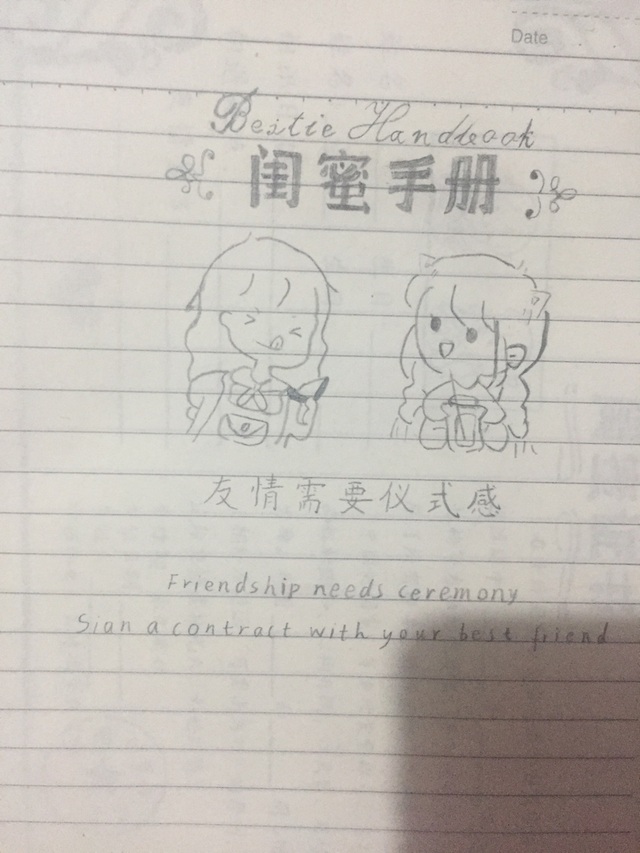 Date
Bestie Handbook
闺蜜手册
友情需要仪式感
Friendship needs ceremony
Sian a contract with your best friend